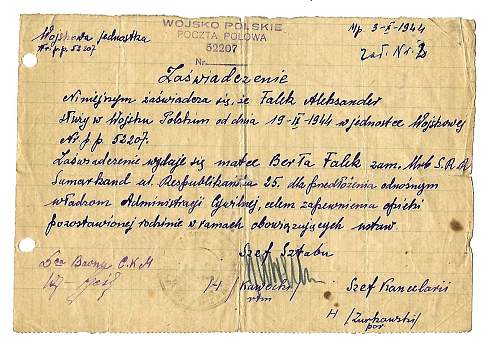 Wojskowa jednostka
Nr. p.p. 52207
WOJSKO POLSKIE
POCZTA POLOWA
52207
Nr.
Mp. 3-X-1944
Zał. Nr. 2
Zaświadczenie
Niniejszym zaświadcza się, że Falek Aleksander
służy w Wojsku Polskim od dnia 19-II-1944 w jednostce Wojskowej
Nr p.p. 52207.
Zaświadczenie wydaje się matce Berta Falek zam. S.R.R
Samarkand ul. Respublikańska 25. dla przedłożenia odnośnym
władzom Administracji Cywilnej, celem zapewnienia opieki
pozostawionej rodzinie w ramach obowiązujących ustaw.
Szef Sztabu
Dca Baonu C.K.M
/-/
Kawecki
rtm
Szef Kancelarii
/Żurkowski/
por